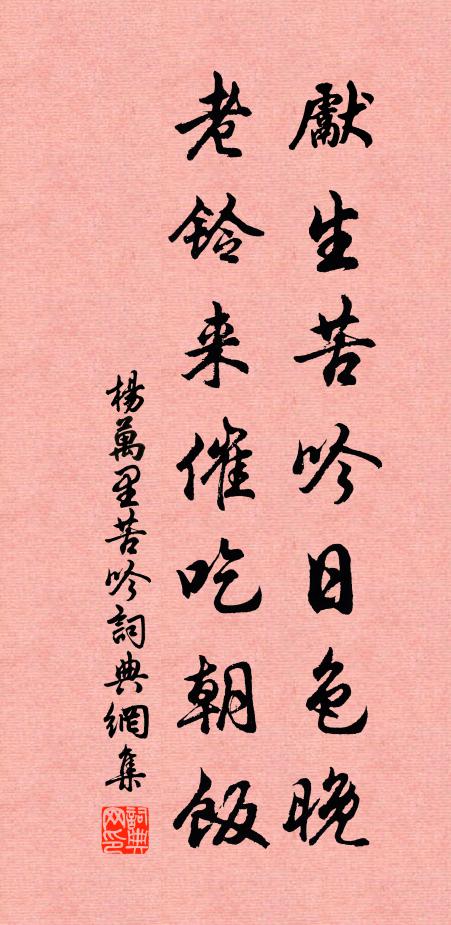 獻生苦吟日色晚
老鈴来催吃朝飯
楊萬里苦吟詞典網集
詞典网印